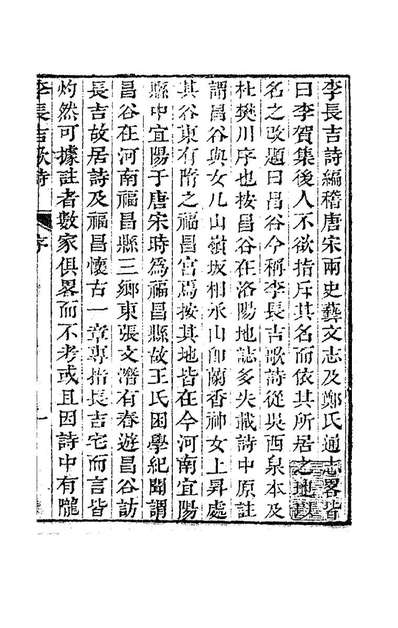 李長吉詩編稽唐宋兩史藝文志及鄭氏通志畧皆
曰李賀集後人不欲指斥其名而依其所居之地
名之改題曰昌谷今稱李長吉歌詩從吳西泉本及
杜樊川序也按昌谷在洛陽地誌多失載詩中原註
謂昌谷與女几山嶺坂相承山卽蘭香神女上昇處
其谷東有隋之福昌宮焉按其地皆在今河南宜陽
縣中宜陽于唐宋時爲福昌縣故王氏困學紀聞謂
昌谷在河南福昌縣三鄉東張文潛有春遊昌谷訪
長吉故居詩及福昌懷古一章專指長吉宅而言皆
灼然可據註者數家俱畧而不考或且因詩中有隴
李長吉歌詩
序
一